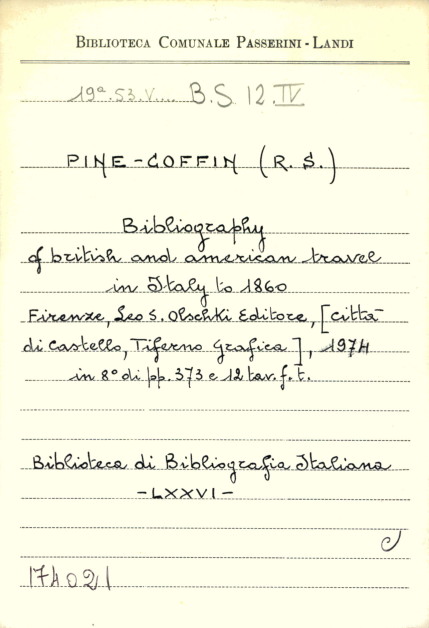 BIBLIOTECA COMUNALE PASSERINI - LANDI
19a.53.V.... B.S 12.IV
PINE-COFFIN (R. S.)
Bibliography
of british and american travel
in Italy to 1860
Firenze, Leo S. Olschki Editore, [Città
di Castello, Tiferno Grafica], 1974
in 8° di pp. 373 e 12 tav. f. t.
Biblioteca di Bibliografia Italiana
-LXXVI-
174021